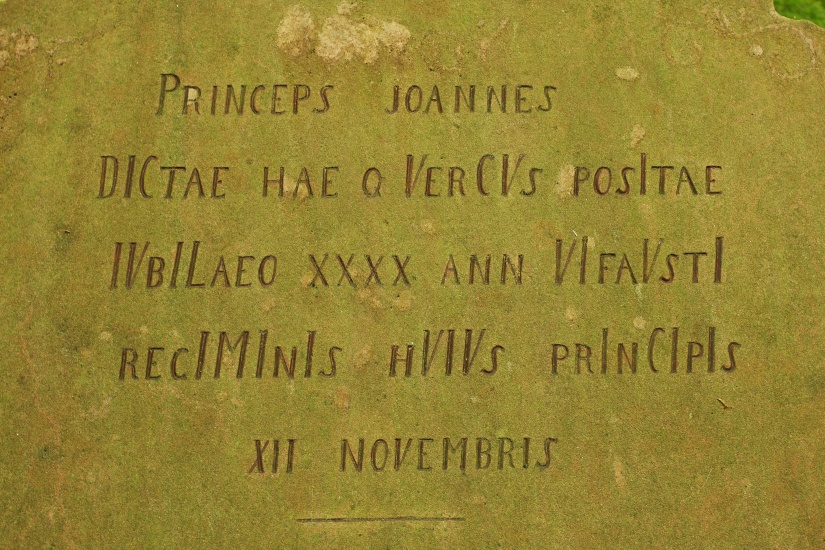 PRINCEPS JOANNES
DICTAE HAE QVERCVS POSITAE
IVBILAEO XXXX ANN VIFAVSTI
RECIMINIS HVIVS PRINCIPIS
XII NOVEMBRIS